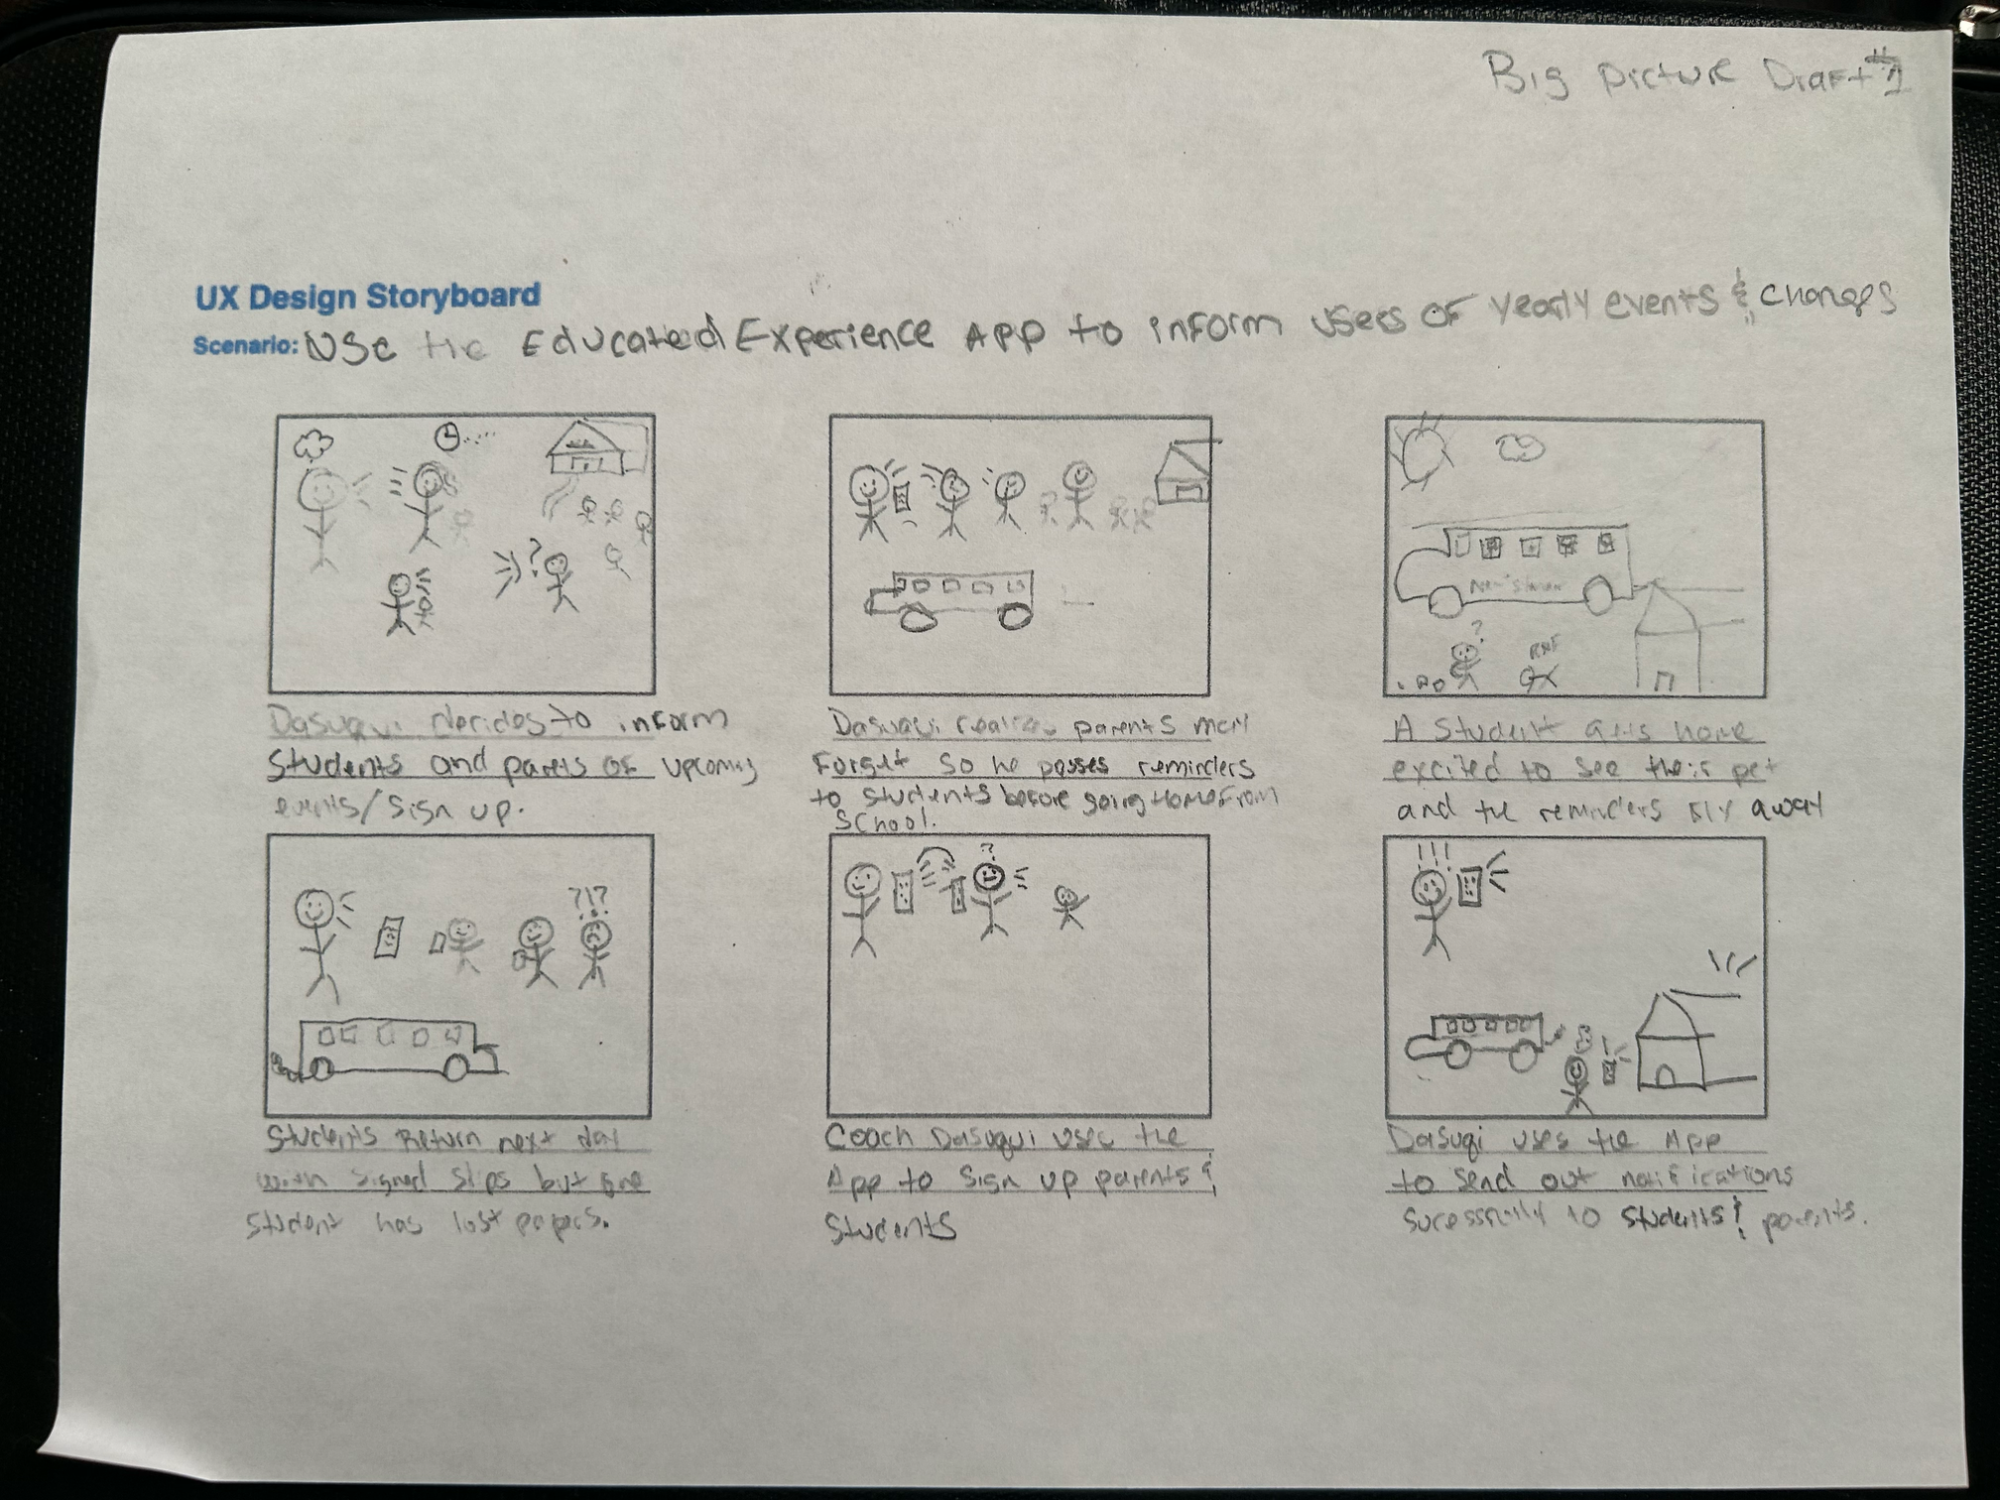 Big Picture Draft #1
UX Design Storyboard
Scenario: Use the Educated Experience App to inform users of yearly events & changes
?
?
RUF
?!?
?
!!!
Dasuqui decides to inform
Students and parets of upcoming
events/Sign up.
Dasuqui realizes parents may
Forget so he passes reminders
to students before going home from
School.
A Student gets home
excited to see their pet
and the reminders fly away
Students Return next day
with signed slips but one
Student has lost papers.
Coach Dasuqui uses the
App to Sign up parents &
Students
Dasuqi uses the App
to send out notifications
sucessfully to students & parents.